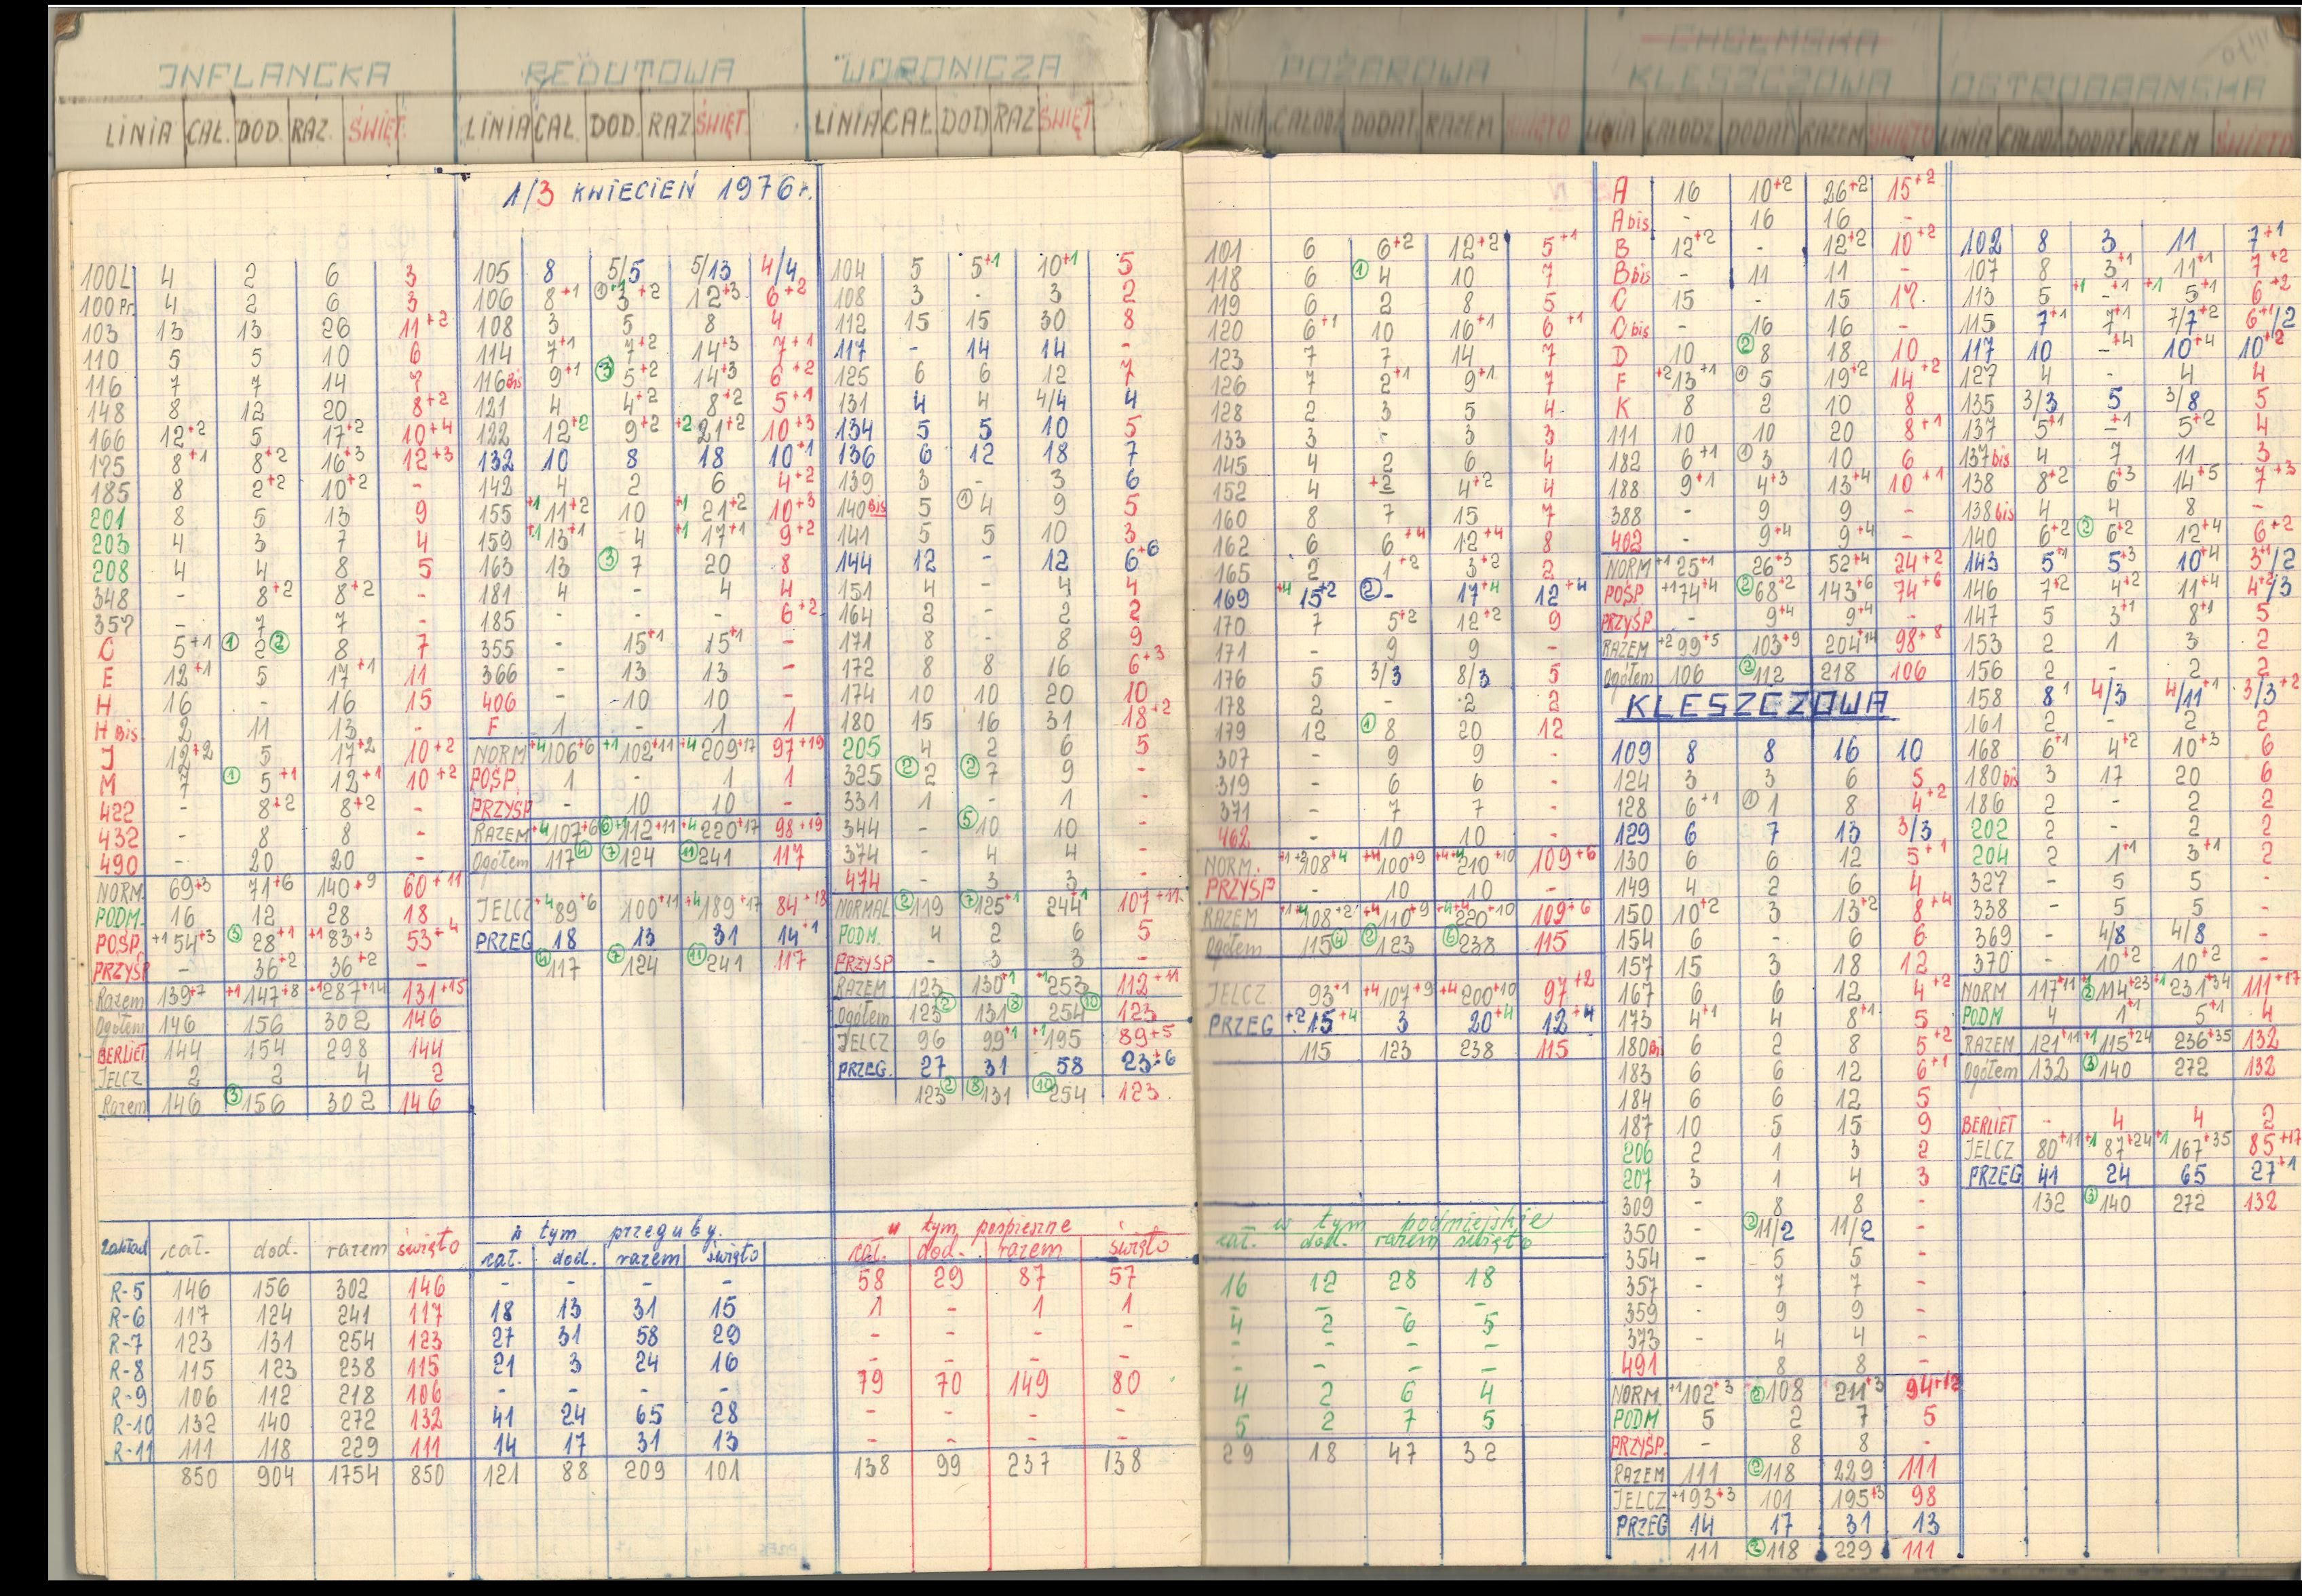 INFLANCKA
LINIA CAŁ. DOD. RAZ. ŚWIĘT.
100L 4 2 6 3
100Pr. 4 2 6 3
103 13 13 26 11+2
110 5 5 10 6
116 7 7 14 7
148 8 12 20 8+2
166 12+2 5 17+2 10+4
175 8+1 8+2 16+3 12+3
185 8 2+2 10+2 -
201 8 5 13 9
203 4 3 7 4
208 4 4 8 5
348 - 8+2 8+2 -
357 - 7 7 -
C 5+1 ① 2 ② 8 7
E 12+1 5 17+1 11
H 16 - 16 15
H Bis 2 11 13 -
J 12+2 5 17+2 10+2
M 7 ① 5+1 12+1 10+2
422 - 8+2 8+2 -
432 - 8 8 -
490 - 20 20 -
NORM. 69+3 71+6 140+9 60+11
PODM. 16 12 28 18
POŚP. +1 54+3 ③ 28+1 +1 83+3 53+4
PRZYŚP - 36+2 36+2 -
Razem 139+7 +1 147+8 +1 287+14 131+15
Ogółem 146 156 302 146
BERLIET 144 154 298 144
JELCZ 2 2 4 2
Razem 146 ③ 156 302 146
REDUTOWA
LINIA CAŁ. DOD. RAZ. ŚWIĘT.
1/3 KWIECIEŃ 1976r.
105 8 5/5 5/13 4/4
106 8+1 ① 3+2 12+3 6+2
108 3 5 8 4
114 7+1 7+2 14+3 7+1
116Bis 9+1 ③ 5+2 14+3 6+2
121 4 4+2 8+2 5+1
122 12+2 9+2 +2 21+2 10+3
132 10 8 18 10+1
142 4 2 6 4+2
155 +1 11+2 10 +1 21+2 10+3
159 +1 13+1 4 +1 17+1 9+2
163 13 ③ 7 20 8
181 4 - 4 4
185 6+2
355 - 15+1 15+1 -
366 - 13 13 -
406 - 10 10 -
F 1 - 1 1
NORM +4 106+6 +1 102+11 +4 209+17 97+19
POŚP. 1 - 1 1
PRZYŚP - 10 10 -
RAZEM +4 107+6 ⑥ +1 112+11 +4 220+17 98+19
Ogółem 117 ④ ⑦ 124 ⑪ 241 117
JELCZ +4 89+6 100+11 +4 189+17 84+18
PRZEG 18 13 31 14+1
④ 117 ⑦ 124 ⑪ 241 117
WORONICZA
LINIA CAŁ. DOD RAZ ŚWIĘT.
104 5 5+1 10+1 5
108 3 - 3 2
112 15 15 30 8
117 - 14 14 -
125 6 6 12 7
131 4 4 4/4 4
134 5 5 10 5
136 6 12 18 7
139 3 - 3 6
140Bis 5 ① 4 9 5
141 5 5 10 3
144 12 - 12 6+6
151 4 - 4 4
164 2 - 2 2
171 8 - 8 9
172 8 8 16 6+3
174 10 10 20 10
180 15 16 31 18+2
205 4 2 6 5
325 ② 2 ② 7 9 -
331 1 - 1 -
344 - ⑤ 10 10 -
374 - 4 4 -
474 - 3 3 -
NORMAL ② 119 ⑦ 125+1 244+1 107+11
PODM. 4 2 6 5
PRZYŚP - 3 3 -
RAZEM 123 130+1 +1 253 112+11
Ogółem 123 ② 131 ⑧ 254 ⑩ 123
JELCZ 96 99+1 +1 195 89+5
PRZEG. 27 31 58 23+6
123 ② ⑧ 131 ⑩ 254 123
POŻAROWA
LINIA CAŁODZ DODAT RAZEM ŚWIĘTO
101 6 6+2 12+2 5+1
118 6 ① 4 10 7
119 6 2 8 5
120 6+1 10 16+1 6+1
123 7 7 14 7
126 7 2+1 9+1 7
128 2 3 5 4
133 3 - 3 3
145 4 2 6 4
152 4 +2 4+2 4
160 8 7 15 7
162 6 6+4 12+4 8
165 2 1+2 3+2 2
169 +4 15+2 ② - 17+4 12+4
170 7 5+2 12+2 9
171 - 9 9 -
176 5 3/3 8/3 5
178 2 - 2 2
179 12 ① 8 20 12
307 - 9 9 -
319 - 6 6 -
371 - 7 7 -
462 - 10 10 -
NORM. 108+4 +4 100+9 210+10 109+6
PRZYŚP - 10 10 -
RAZEM 108+2 +4 110+9 220+10 109+6
Ogółem 115 ④ ② 123 ⑥ 238 115
JELCZ 93+1 +4 107+9 +4 200+10 97+2
PRZEG +2 15+4 3 20+4 12+4
115 123 238 115
CHEŁMSKA
KLESZCZOWA
LINIA CAŁODZ DODAT RAZEM ŚWIĘTO
A 16 10+2 26+2 15+2
A bis - 16 16 -
B 12+2 - 12+2 10+2
B bis - 11 11 -
C 15 - 15 17
C bis - 16 16 -
D 10 ② 8 18 10
F +2 13+1 ① 5 19+2 14+2
K 8 2 10 8
111 10 10 20 8+1
182 6+1 ① 3 10 6
188 9+1 4+3 13+4 10+1
388 - 9 9 -
402 - 9+4 9+4 -
NORM +1 25+1 26+3 52+4 24+2
POŚP +1 74+4 ② 68+2 143+6 74+6
PRZYŚP - 9+4 9+4 -
RAZEM +2 99+5 103+9 204+14 98+8
Ogółem 106 ② 112 218 106
KLESZCZOWA
109 8 8 16 10
124 3 3 6 5
128 6+1 ① 1 8 4+2
129 6 7 13 3/3
130 6 6 12 5+1
149 4 2 6 4
150 10+2 3 13+2 8+4
154 6 - 6 6
157 15 3 18 12
167 6 6 12 4+2
173 4+1 4 8+1 5
180Bi 6 2 8 5+2
183 6 6 12 6+1
184 6 6 12 5
187 10 5 15 9
206 2 1 3 2
207 3 1 4 3
309 - 8 8 -
350 - ② 11/2 11/2 -
354 - 5 5 -
357 - 7 7 -
359 - 9 9 -
373 - 4 4 -
491 - 8 8 -
NORM. +1 102+3 ② 108 211+3 94+12
PODM 5 2 7 5
PRZYŚP. - 8 8 -
RAZEM 111 ② 118 229 111
JELCZ +1 93+3 101 195+3 98
PRZEG 14 17 31 13
111 ② 118 229 111
OSTROBRAMSKA
LINIA CAŁODZ DODAT RAZEM ŚWIĘTO
102 8 3 11 7+1
107 8 3+1 11+1 7+2
113 5 +1 -+1 +1 5+1 6+2
115 7+1 7+1 7/7+2 6+1/2
117 10 -+4 10+4 10+2
127 4 - 4 4
135 3/3 5 3/8 5
137 5+1 -+1 5+2 4
137bis 4 7 11 3
138 8+2 6+3 14+5 7+3
138bis 4 4 8 -
140 6+2 ② 6+2 12+4 6+2
143 5+1 5+3 10+4 3+1/2
146 7+2 4+2 11+4 4+2/3
147 5 3+1 8+1 5
153 2 1 3 2
156 2 - 2 2
158 8+1 4/3 4/11+1 3/3+2
161 2 - 2 2
168 6+1 4+2 10+3 6
180bis 3 17 20 6
186 2 - 2 2
202 2 - 2 2
204 2 1+1 3+1 2
327 - 5 5 -
338 - 5 5 -
369 - 4/8 4/8 -
370 - 10+2 10+2 -
NORM 117+11 ② 114+23 +1 231+34 111+17
PODM 4 1+1 5+1 4
RAZEM 121+11 +1 115+24 236+35 132
Ogółem 132 ③ 140 272 132
BERLIET - 4 4 2
JELCZ 80+11 +1 87+24 +1 167+35 85+17
PRZEG 41 24 65 27+1
132 ③ 140 272 132
Zakład cał. dod. razem święto
R-5 146 156 302 146
R-6 117 124 241 117
R-7 123 131 254 123
R-8 115 123 238 115
R-9 106 112 218 106
R-10 132 140 272 132
R-11 111 118 229 111
850 904 1754 850
w tym przeguby.
cał. dod. razem święto
- - - -
18 13 31 15
27 31 58 29
21 3 24 16
- - - -
41 24 65 28
14 17 31 13
121 88 209 101
w tym pospieszne
cał. dod. razem święto
58 29 87 57
1 - 1 1
- - - -
- - - -
79 70 149 80
- - - -
- - - -
138 99 237 138
w tym podmiejskie
cał. dod. razem święto
16 12 28 18
- - - -
4 2 6 5
- - - -
- - - -
4 2 6 4
5 2 7 5
29 18 47 32